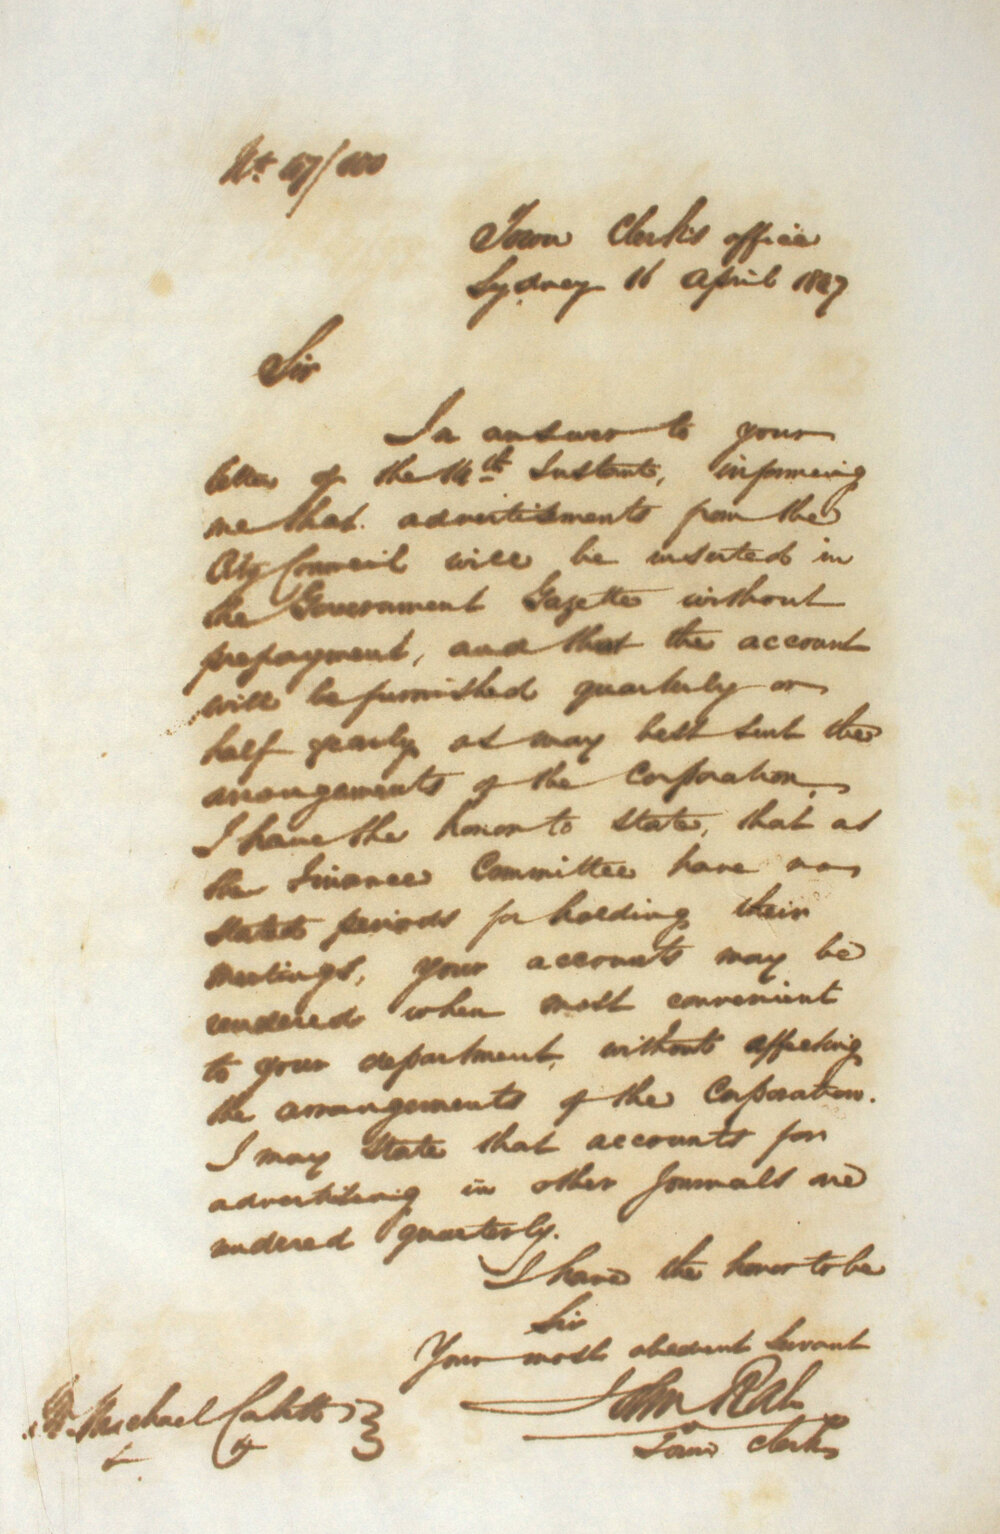 No. 47/100
Town Clerk's office
Sydney 16 April 1847
Sir
In answer to your
letter of the 14th Instant, informing
me that advertisements from the
City Council will be inserted in
the Government Gazette without
prepayment, and that the account
will be furnished quarterly or
half yearly as may best suit the
arrangements of the Corporation,
I have the honor to state, that as
the Finance Committee have no
stated periods for holding their
meetings, your accounts may be
rendered when most convenient
to your department, without affecting
the arrangements of the Corporation.
I may state that accounts for
advertising in other Journals are
rendered quarterly.
I have the honor to be
Sir
Your most obedient Servant
John
Town Clerk
Mr. Michael